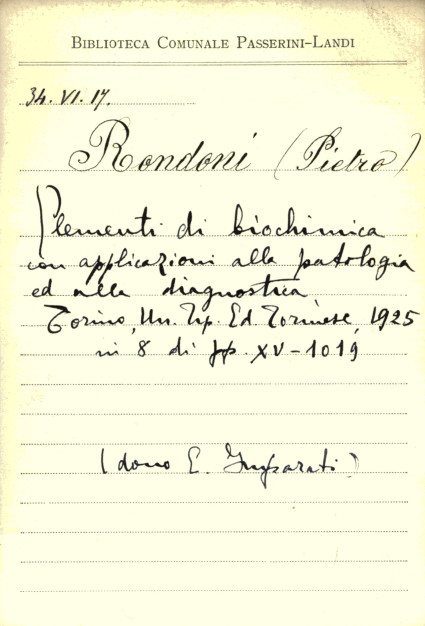 BIBLIOTECA COMUNALE PASSERINI-LANDI
34. VI. 17.
Rondoni (Pietro)
Elementi di biochimica
con applicazioni alla patologia
ed alla diagnostica
Torino, Un. Tip. Ed. Torinese, 1925
in 8 di pp. XV-1019
(dono E. Imparati)